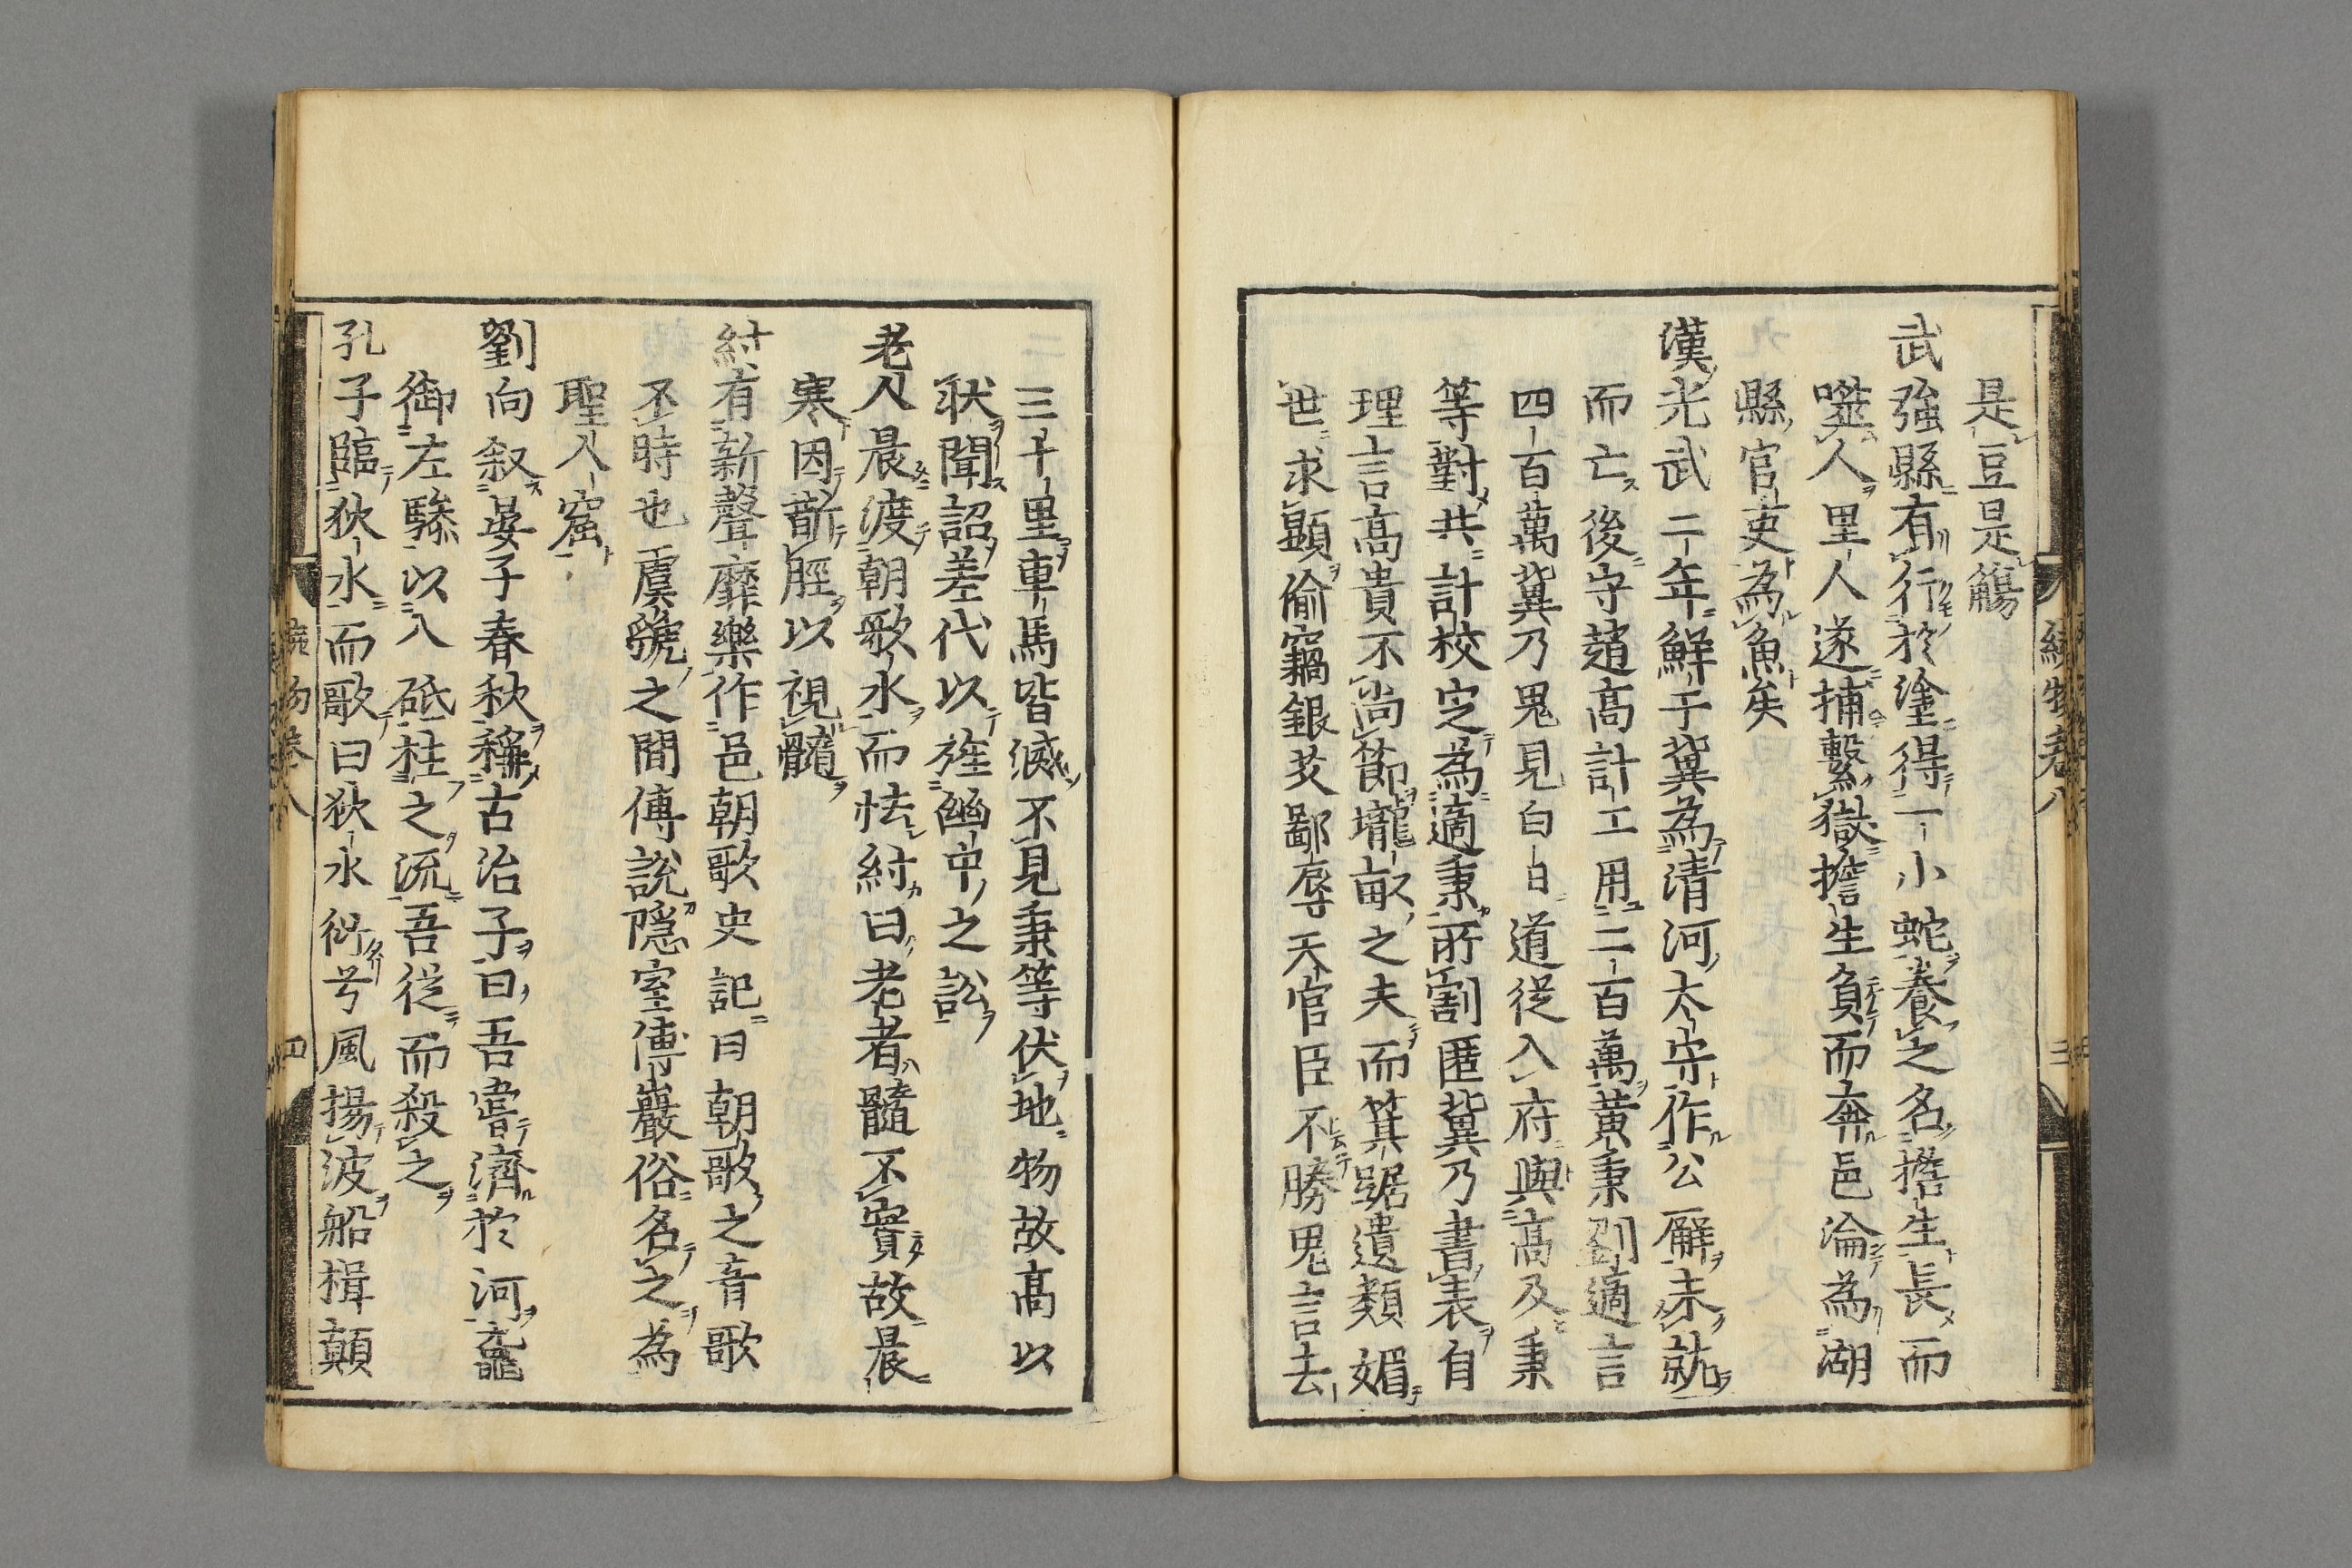 是豆是觴
武強縣有行於塗得一小蛇養之名擔生長而
噬人里人遂捕繫獄擔生負而奔邑淪為湖
縣官吏為魚矣
漢光武二年鮮于冀為清河太守作公廨未就
而亡後守趙高計工用二百萬黃秉劉適言
四百萬冀乃鬼見白日道從入府與高及秉
等對共計校定為適秉所割匿冀乃書表自
理言高貴不尚節壠畝之夫而箕踞遺類媚
世求顯偷竊銀艾鄙辱天官臣不勝鬼言去
三十里車馬皆滅不見秉等伏地物故高以
狀聞詔差代以旌幽中之訟
老人晨渡朝歌水而怯紂曰老者髓不實故晨
寒因斮脛以視髓
紂有新聲靡樂作邑朝歌史記曰朝歌之音歌
不時也虞虢之間傳說隱室傳巖俗名之為
聖人窟
劉向叙晏子春秋稱古冶子曰吾嘗濟於河黿
御左驂以入砥柱之流吾從而殺之
孔子臨狄水而歌曰狄水衍兮風揚波船楫顛
續物卷八